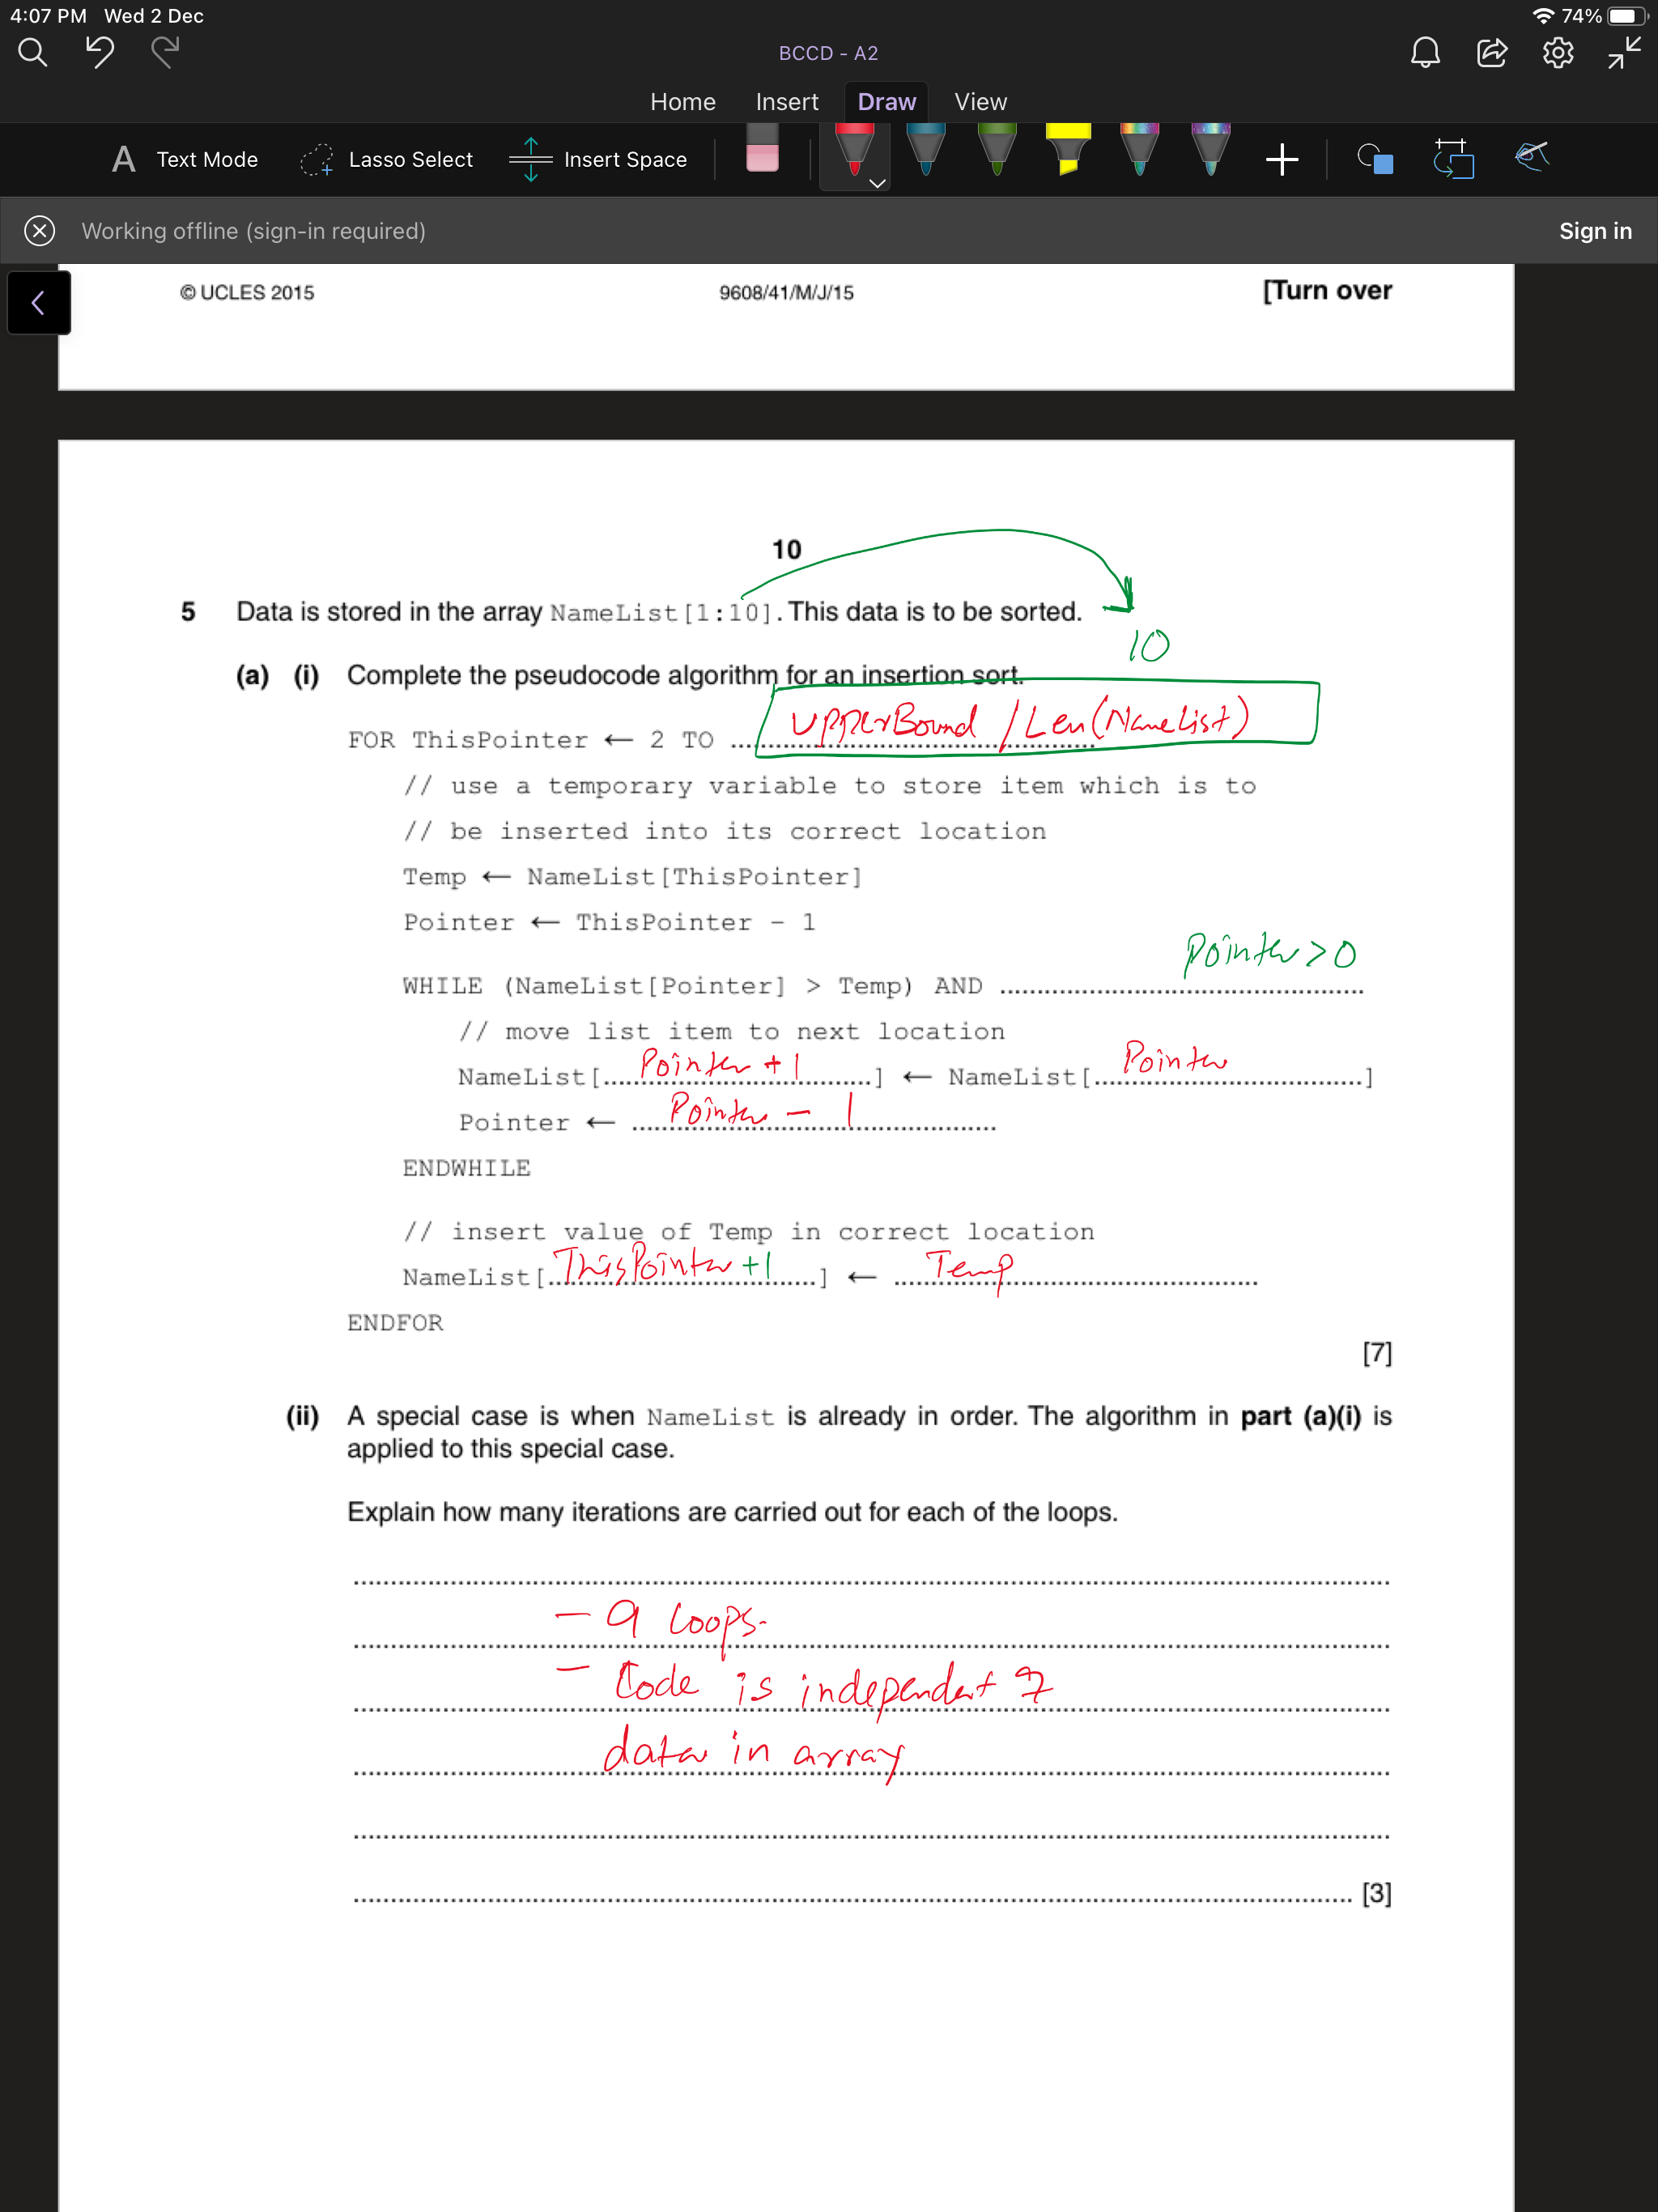 4:07 PM Wed 2 Dec
74%
BCCD - A2
Home Insert Draw View
A Text Mode Lasso Select Insert Space
Working offline (sign-in required) Sign in
© UCLES 2015 9608/41/M/J/15 [Turn over
10
5 Data is stored in the array NameList[1:10]. This data is to be sorted.
10
(a) (i) Complete the pseudocode algorithm for an insertion sort.
FOR ThisPointer ← 2 TO UpperBound / Len(NameList)
// use a temporary variable to store item which is to
// be inserted into its correct location
Temp ← NameList[ThisPointer]
Pointer ← ThisPointer - 1
WHILE (NameList[Pointer] > Temp) AND Pointer > 0
// move list item to next location
NameList[Pointer + 1] ← NameList[Pointer]
Pointer ← Pointer - 1
ENDWHILE
// insert value of Temp in correct location
NameList[ThisPointer +1] ← Temp
ENDFOR
[7]
(ii) A special case is when NameList is already in order. The algorithm in part (a)(i) is
applied to this special case.
Explain how many iterations are carried out for each of the loops.
- 9 Loops.
- Code is independent of
data in array
[3]